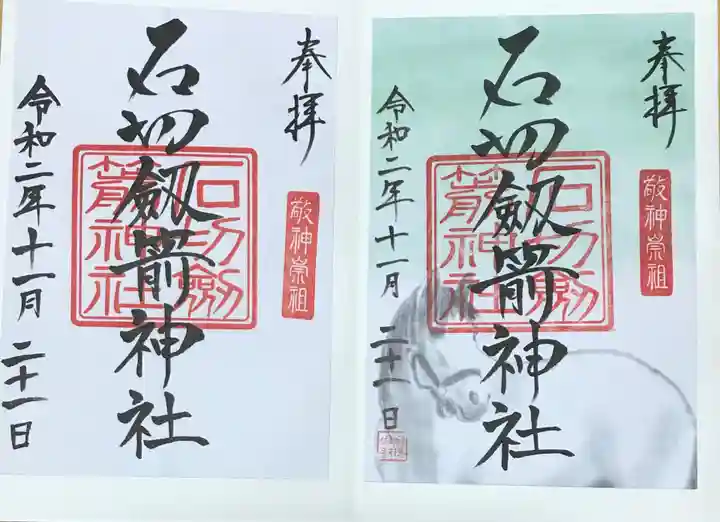 奉拝
敬神崇祖
石切劔箭神社
石切劔箭神社
令和二年十一月二十一日
奉拝
敬神崇祖
石切劔箭神社
石切劔箭神社
令和二年十一月二十一日